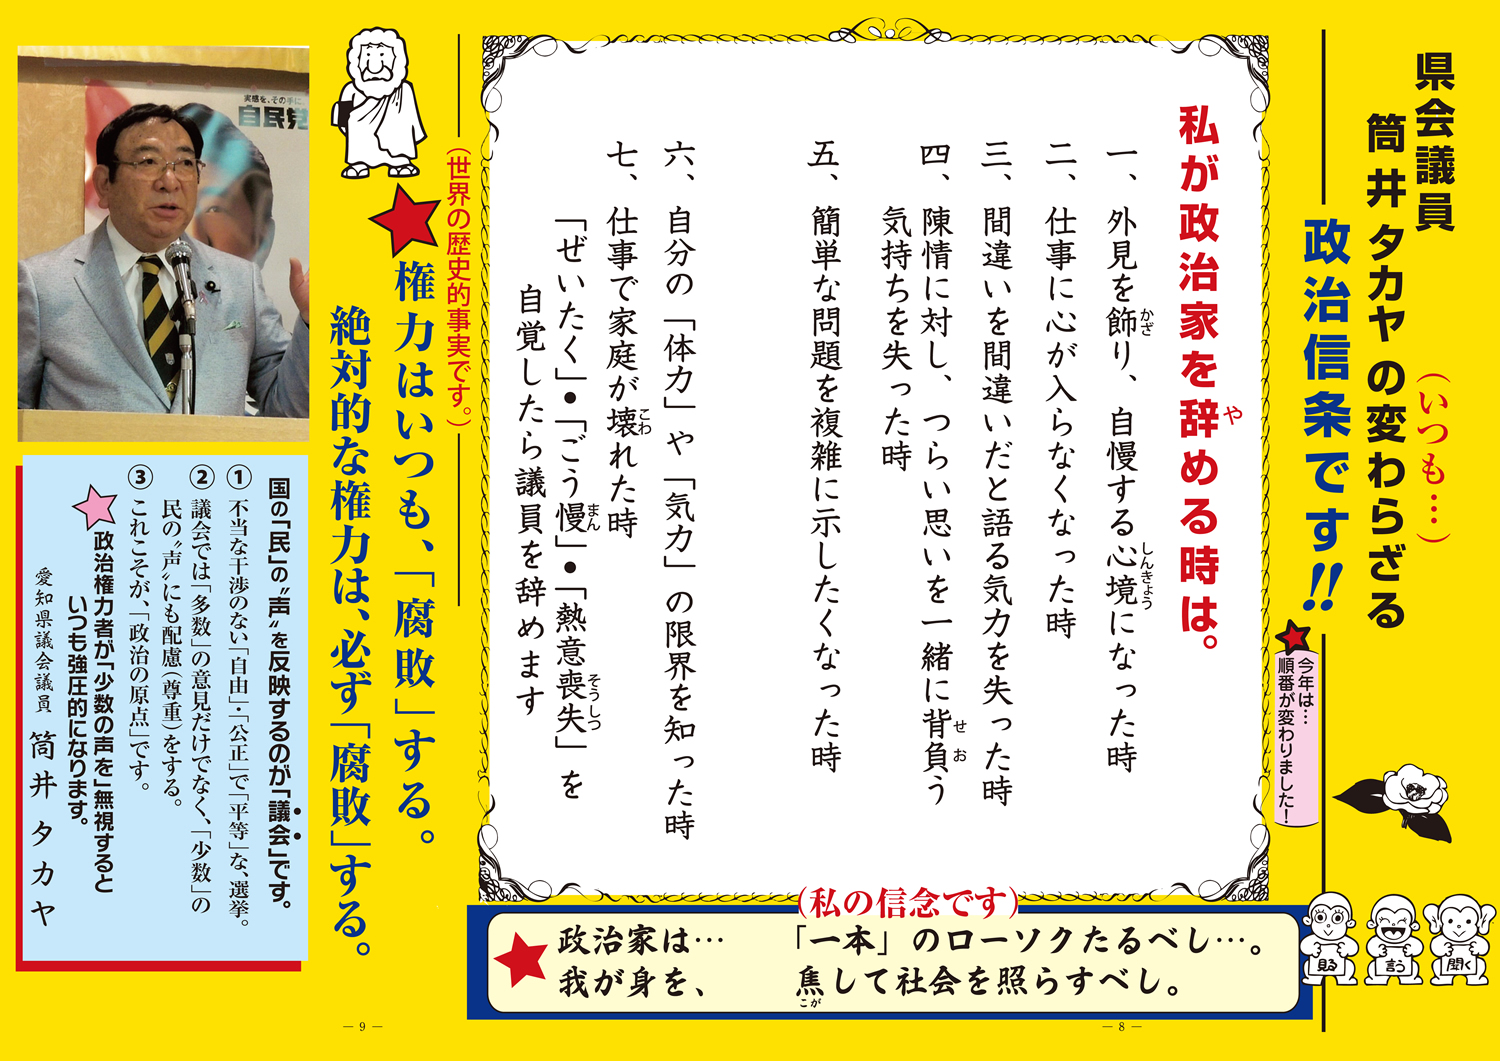 県会議員
筒井タカヤの変わらざる
(いつも…)
政治信条です!!
今年は…
順番が変わりました!
私が政治家を辞める時は。
や
一、外見を飾り、自慢する心境になった時
かざ
しんきょう
二、仕事に心が入らなくなった時
三、間違いを間違いだと語る気力を失った時
四、陳情に対し、つらい思いを一緒に背負う
せお
気持ちを失った時
五、簡単な問題を複雑に示したくなった時
六、自分の「体力」や「気力」の限界を知った時
七、仕事で家庭が壊れた時
こわ
「ぜいたく」•「ごう慢」•「熱意喪失」を
まん
そうしつ
自覚したら議員を辞めます
(私の信念です)
政治家は… 「一本」のローソクたるべし…。
我が身を、 焦して社会を照らすべし。
こが
見る
言う
聞く
― 8 ―
(世界の歴史的事実です。)
★権力はいつも、「腐敗」する。
絶対的な権力は、必ず「腐敗」する。
実感を、その手に。
自民党
国の「民」の〝声〟を反映するのが「議会」です。
① 不当な干渉のない「自由」・「公正」で「平等」な、選挙。
② 議会では「多数」の意見だけでなく、「少数」の
民の〝声〟にも配慮(尊重)をする。
③ これこそが、「政治の原点」です。
★政治権力者が「少数の声を」無視すると
いつも強圧的になります。
愛知県議会議員 筒井タカヤ
― 9 ―